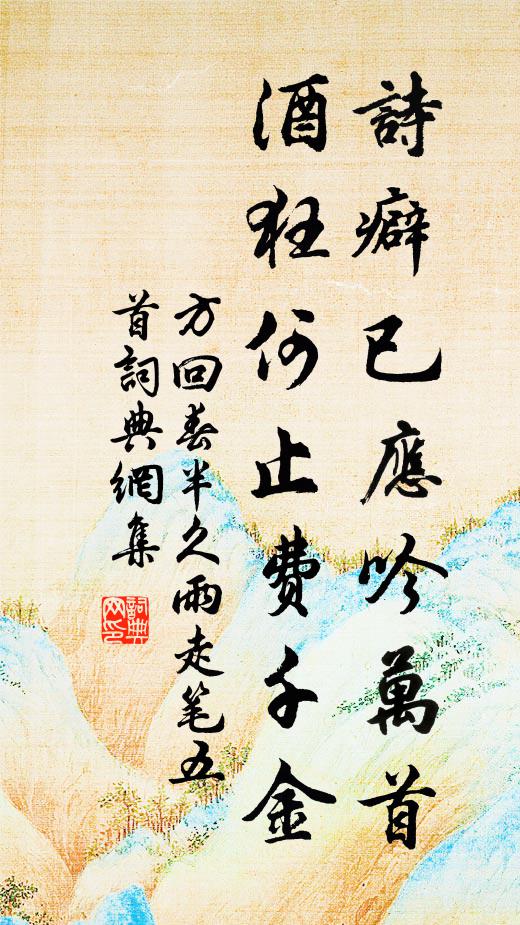 詩癖已應吟萬首
酒狂何止費千金
方回春半久雨走笔五
首詞典網集
詞典
网印